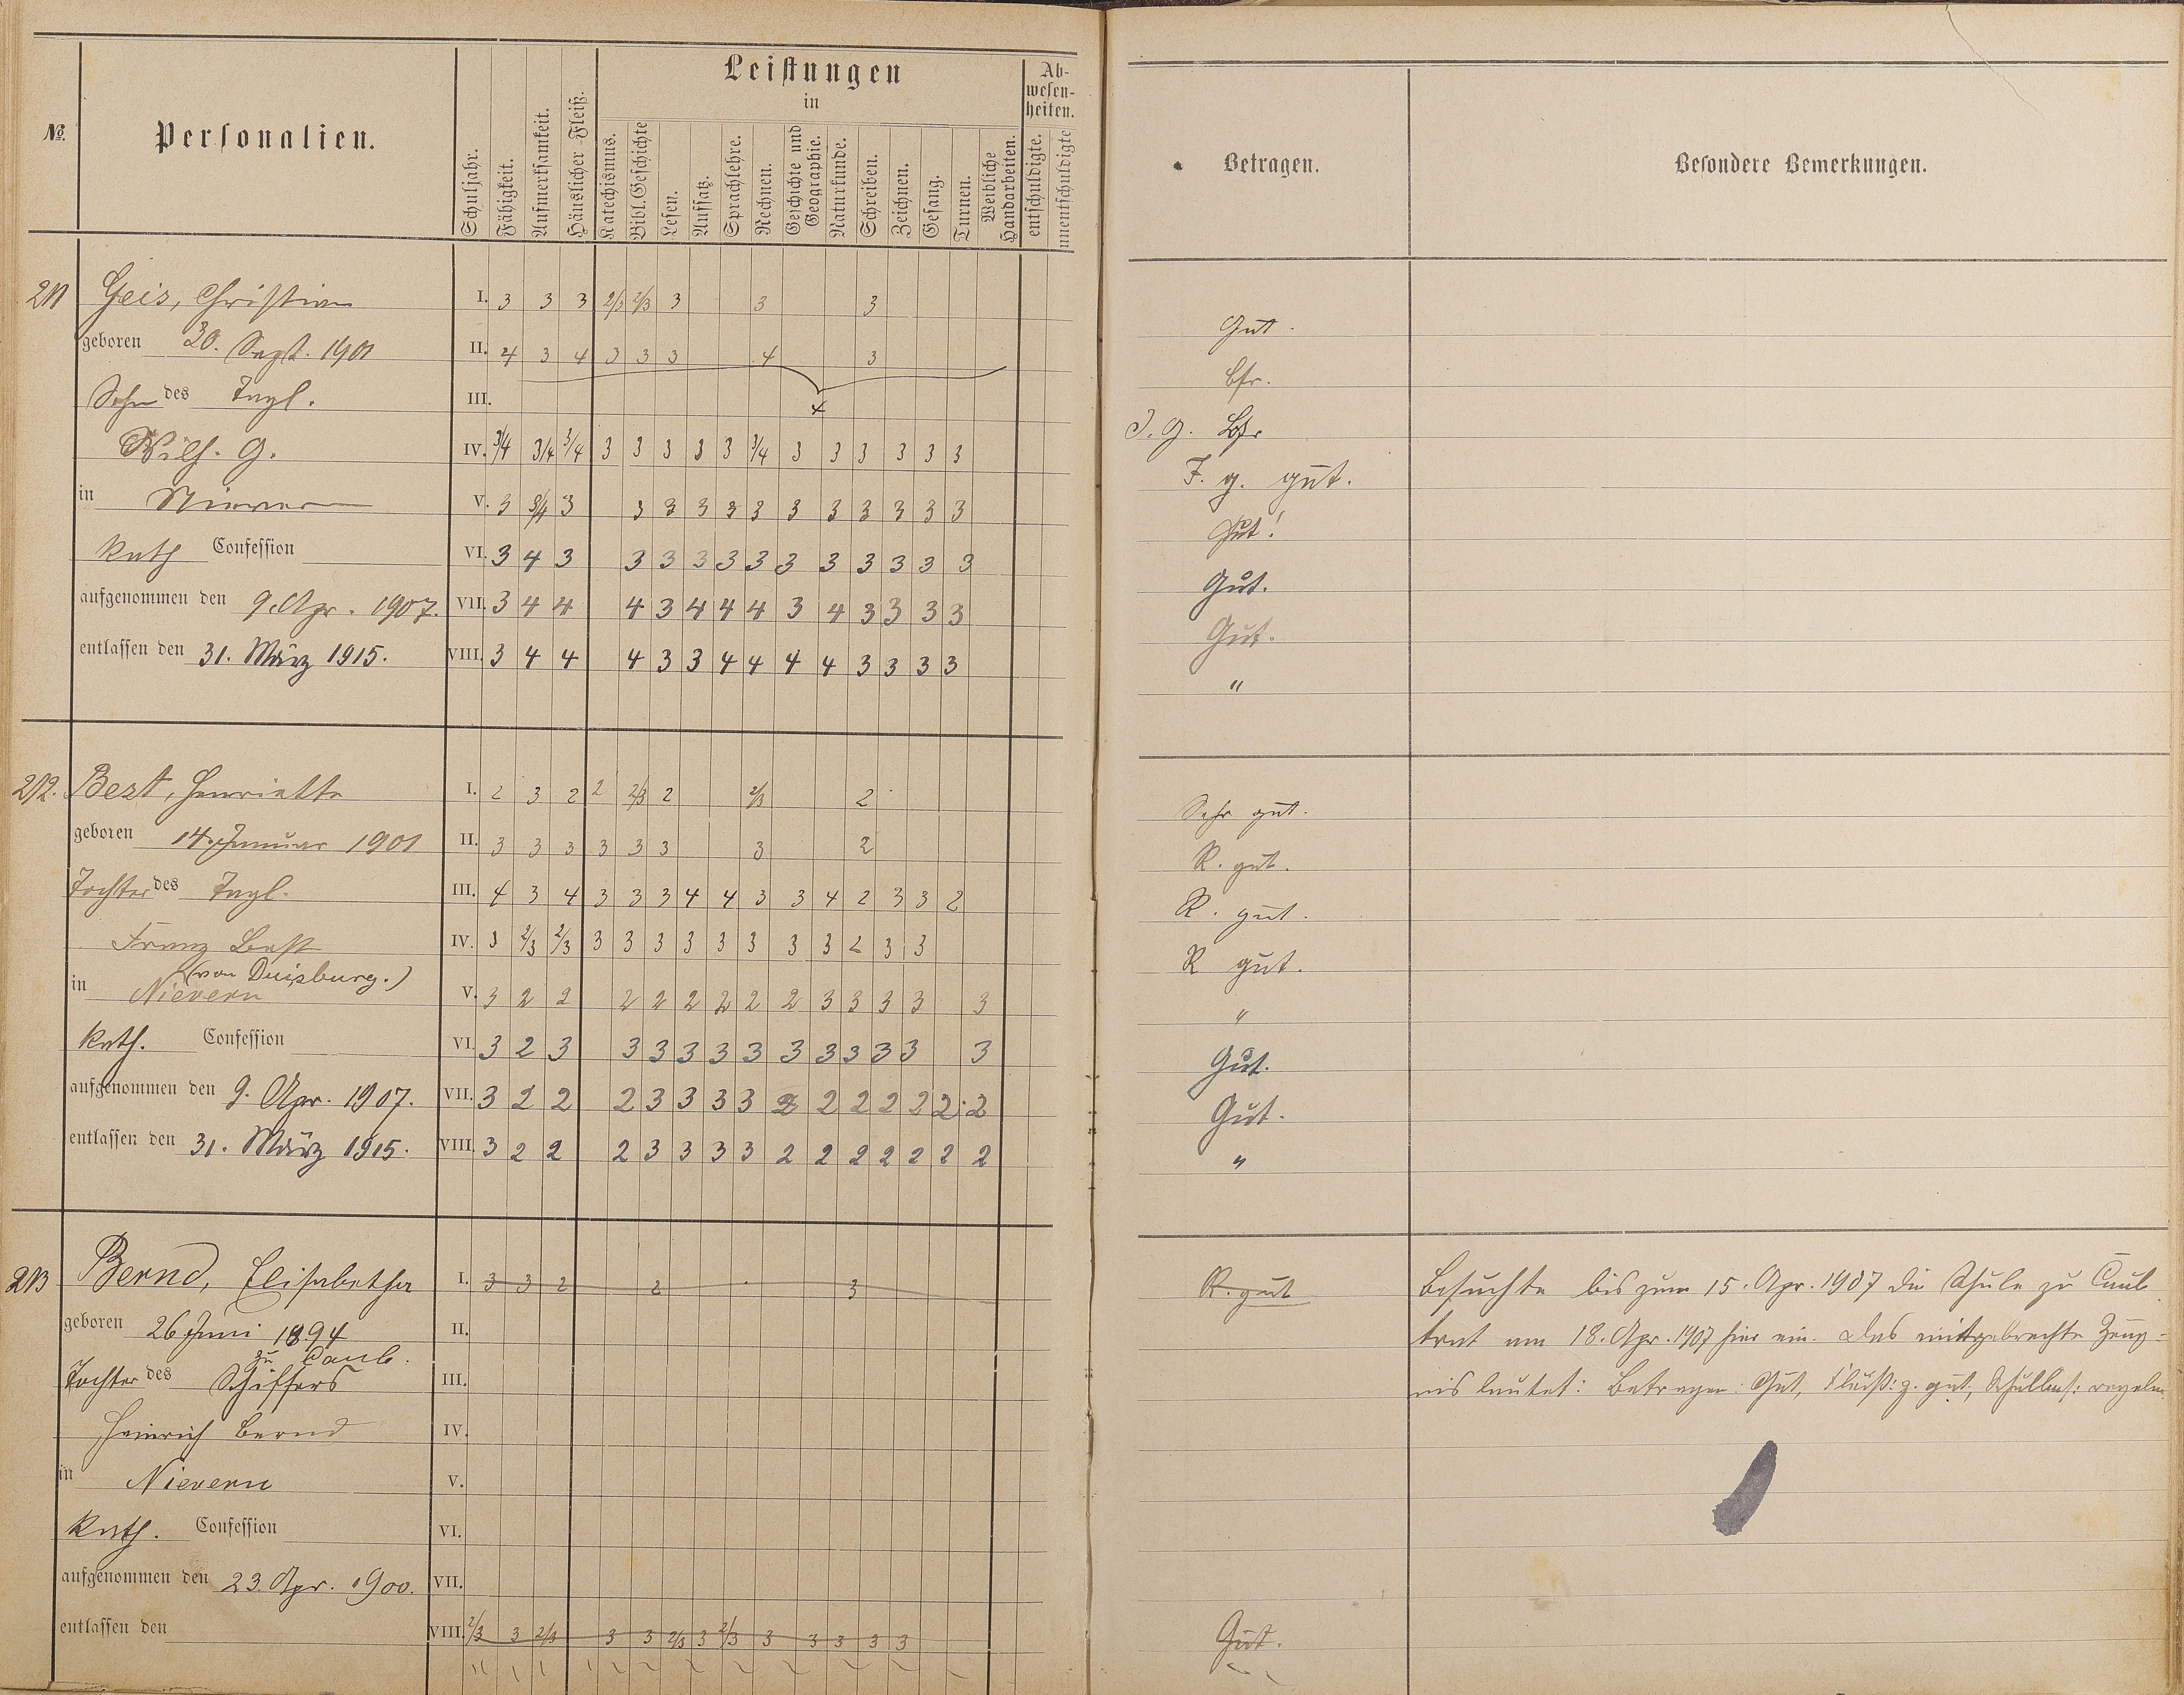 No. Personalien. Schuljahr. Fähigkeit. Aufmerksamkeit. Häuslicher Fleiß. Leistungen in Ab-wesen-heiten.
Katechismus. Bibl. Geschichte Lesen. Aufsatz. Sprachlehre. Rechnen. Geschichte und Geographie. Naturkunde. Schreiben. Zeichnen. Gesang. Turnen. Weibliche Handarbeiten. entschuldigte. unentschuldigte
211 Geis, Christian I. 3 3 3 2/3 2/3 3 3 3
geboren 30. Sept. 1901 II. 4 3 4 3 3 3 4 3
Sohn des Tagl. III. 4
Wilh. G. IV. 3/4 3/4 3/4 3 3 3 3 3 3/4 3 3 3 3 3 3
in Nievern V. 3 3/4 3 3 3 3 3 3 3 3 3 3 3 3
Kath Confession VI. 3 4 3 3 3 3 3 3 3 3 3 3 3 3
aufgenommen den 9. Apr. 1907. VII. 3 4 4 4 3 4 4 4 3 4 3 3 3 3
entlassen den 31. März 1915. VIII. 3 4 4 4 3 3 4 4 4 4 3 3 3 3
212. Best, Henriette I. 2 3 2 2 2/3 2 2/3 2
geboren 14. Januar 1901 II. 3 3 3 3 3 3 3 2
Tochter des Tagl. III. 4 3 4 3 3 3 4 4 3 3 4 2 3 3 2
Franz Best IV. 3 2/3 2/3 3 3 3 3 3 3 3 3 2 3 3
(von Duisburg.)
in Nievern V. 3 2 2 2 2 2 2 2 2 3 3 3 3 3
Kath. Confession VI. 3 2 3 3 3 3 3 3 3 3 3 3 3 3
aufgenommen den 9. Apr. 1907. VII. 3 2 2 2 3 3 3 3 2 2 2 2 2 2 2
entlassen den 31. März 1915. VIII. 3 2 2 2 3 3 3 3 2 2 2 2 2 2 2
213 Bernd, Elisabetha I. 3 3 2 2 3
geboren 26 Juni 1894 II.
zu Caub.
Tochter des Schiffers III.
Heinrich Bernd IV.
in Nievern V.
Kath. Confession VI.
aufgenommen den 23. Apr. 1900. VII.
entlassen den VIII. 2/3 3 2/3 3 3 2/3 3 2/3 3 3 3 3 3
Betragen. Besondere Bemerkungen.
Gut.
Bfr.
Bfr
F. g. gut.
Gut!
Gut.
Gut.
"
Sehr gut.
R. gut.
R. gut.
R gut.
"
Gut.
Gut.
"
R. gut Besuchte bis zum 15. Apr. 1907 die Schule zu Caub
trat am 18. Apr. 1907 hier ein. Das mitgebrachte Zeug-
nis lautet: Betragen: Gut, Fleiß: z. gut, Schulbes: regelm.
Gut.